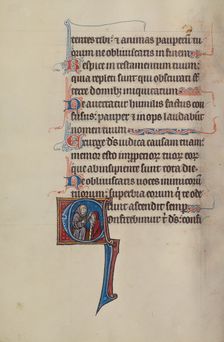 tentes tibi: & animas pauperum tu
orum ne obliuiscaris in finem.
Respice in testamentum tuum:
quia repleti sunt qui obscurati st
terre domib; iniquitatum.
Ne auertatur humilis factus con
fusus: pauper & inops laudabūt
nomen tuum.
Exurge ds iudica causam tuam:
memor esto improperior tuor eor
que ab insipiente sunt tota die.
Ne obliuiscaris uoces inimicorum
tuorum: superbia eorum q te o
derunt ascendit semp.
Confitebimur t ds: confi